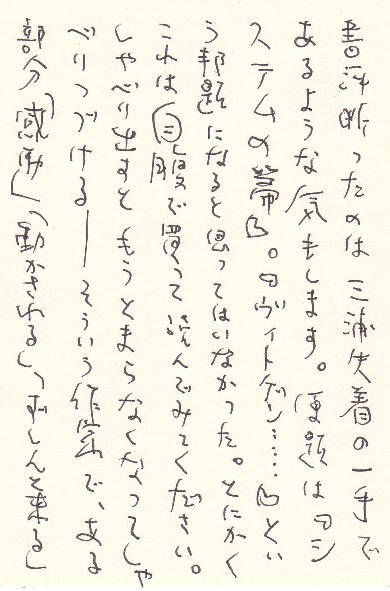 書評断ったのは三浦失着の一手で
あるような気もします。原題は『シ
ステムの箒』。『ヴィトゲン……』とい
う邦題になると思ってはいなかった。とにかく
これは自腹で買って読んでみてください。
しゃべり出すともうとまらなくなってしゃ
べりつづける――そういう作家で、ある
部分「感動」「動かされる」「ずしんと来る」